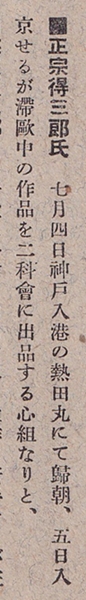 ■正宗得三郎氏　七月四日神戸入港の熱田丸にて歸朝、五日入
京せるが滯歐中の作品を二科會に出品する心組なりと、